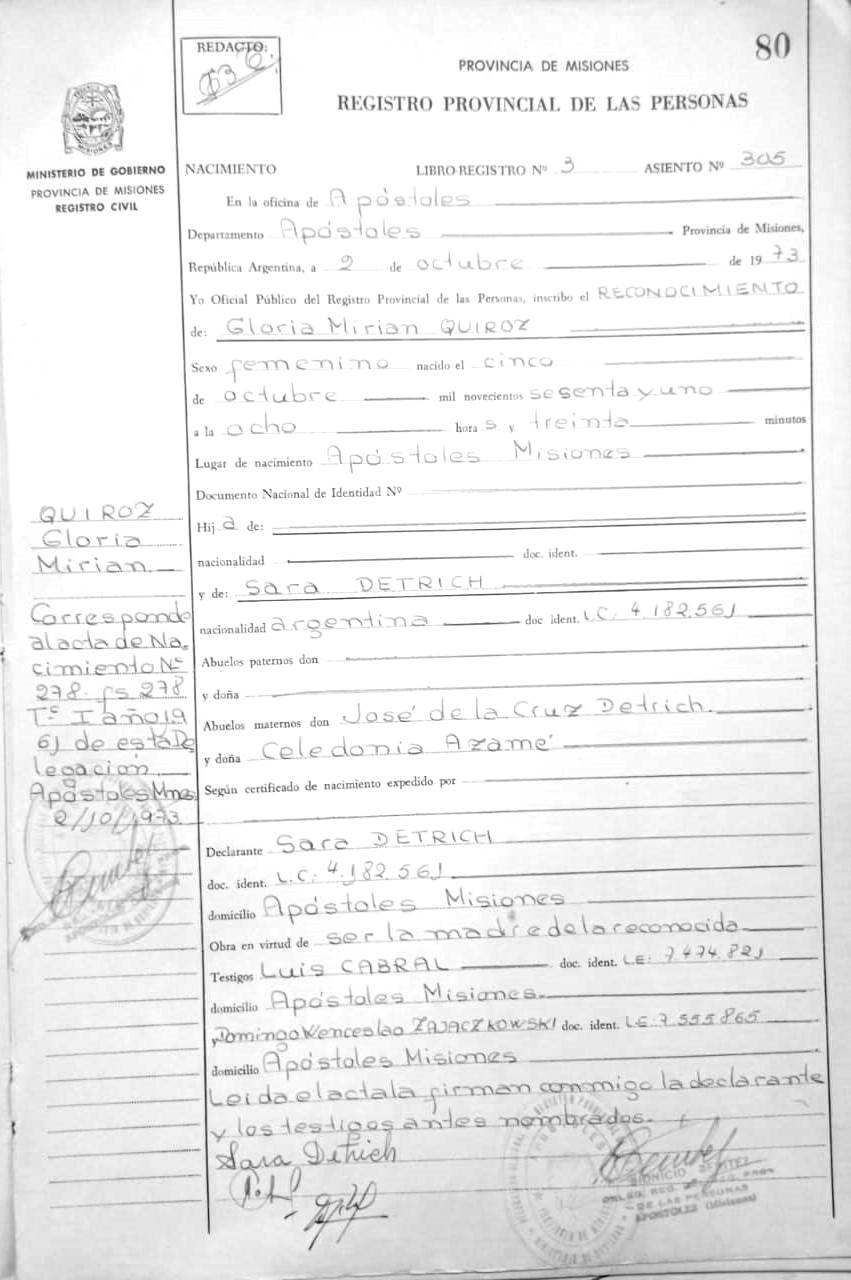 80
REDACTO:
PROVINCIA DE MISIONES
REGISTRO PROVINCIAL DE LAS PERSONAS
MINISTERIO DE GOBIERNO
PROVINCIA DE MISIONES
REGISTRO CIVIL
NACIMIENTO LIBRO-REGISTRO Nº 3 ASIENTO Nº 305
En la oficina de Apóstoles
Departamento Apóstoles Provincia de Misiones,
República Argentina, a 2 de octubre de 1973
Yo Oficial Público del Registro Provincial de las Personas, inscribo el RECONOCIMIENTO
de: Gloria Mirian QUIROZ
Sexo femenino nacido el cinco
de octubre mil novecientos sesenta y uno
a la ocho hora s y treinta minutos
Lugar de nacimiento Apóstoles Misiones
Documento Nacional de Identidad Nº
Hij a de:
nacionalidad doc. ident.
y de: Sara DETRICH
nacionalidad argentina doc ident. L.C: 4.182.561
Abuelos paternos don
y doña
Abuelos maternos don José de la Cruz Detrich
y doña Celedonia Azamé
Según certificado de nacimiento expedido por
Declarante Sara DETRICH
doc. ident. L.C: 4.182.561
domicilio Apóstoles Misiones
Obra en virtud de ser la madre de la reconocida
Testigos Luis CABRAL doc. ident. L.E: 7.474.821
domicilio Apóstoles Misiones
y Domingo Wenceslao ZAJACZKOWSKI doc. ident. L.E: 7.555.865
domicilio Apóstoles Misiones
Leida el acta la firman conmigo la declarante
y los testigos antes nombrados.
Sara Detrich
DIONICIO BENITEZ
DE LAS PERSONAS
APOSTOLES (Misiones)
QUIROZ
Gloria
Mirian
Corresponde
al acta de Na
cimiento Nº
278 fs 278
Tº I año 19
61 de esta De
legación
Apóstoles Mnes
2/10/1973